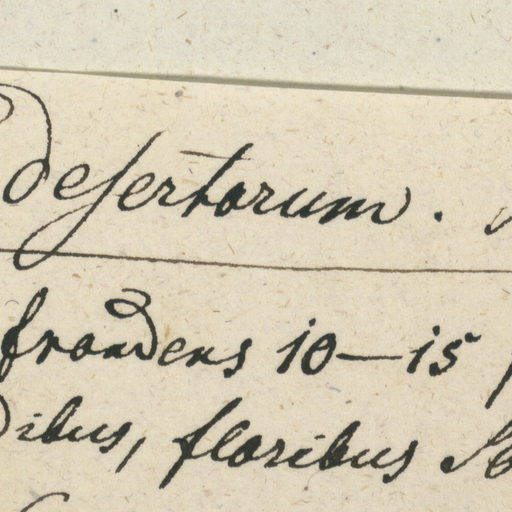 desertorum.
frondens 10—15
dibus, floribus